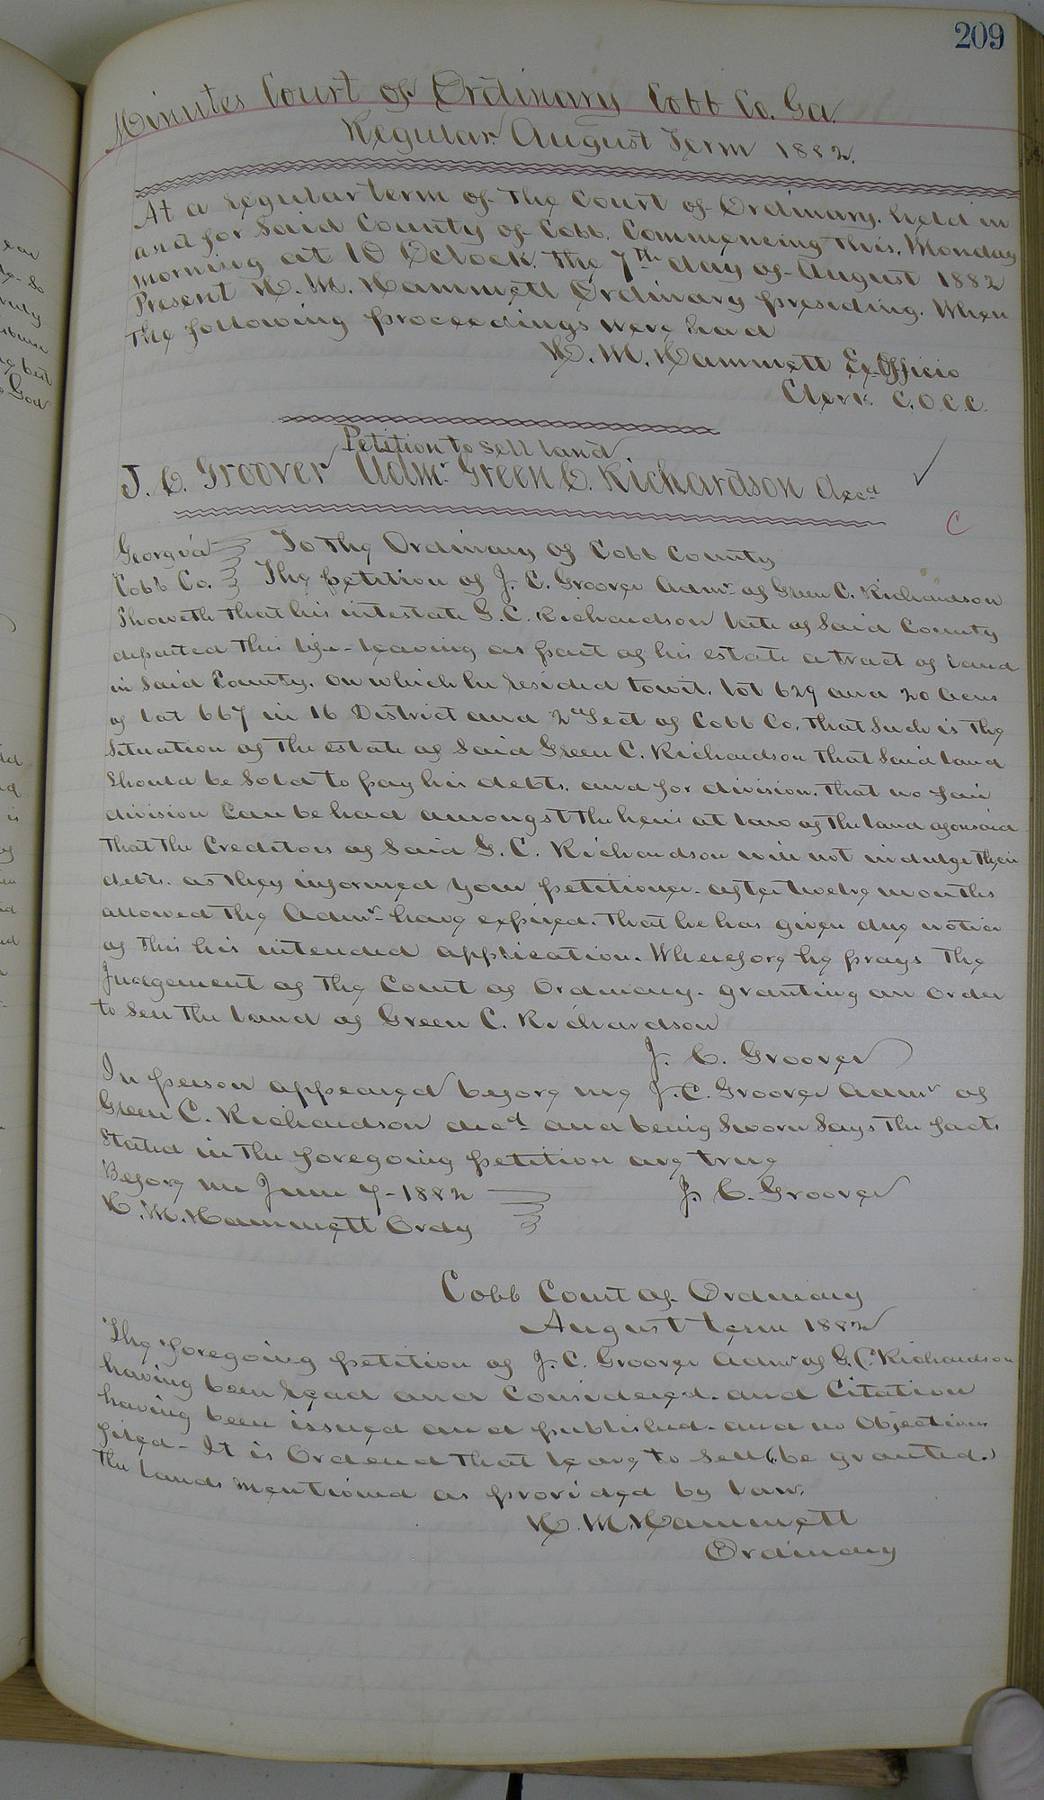 209
Minutes Court of Ordinary Cobb Co. Ga.
Regular August Term 1882.
At a regular term of the Court of Ordinary. held in
and for Said County of Cobb. Commencing this, Monday
morning at 10 Oclock. the 7th day of August 1882
Present H. M. Hammett Ordinary presiding. When
the following proceedings were had
H. M. Hammett Ex Officio
Clerk C.O.C.C.
Petition to sell land.
J. C. Groover Admr. Green C. Richardson decd
C
Georgia To the Ordinary of Cobb County
Cobb Co. The petition of J. C. Groover Admr. of Green C. Richardson
Showeth that his intestate G. C. Richardson late of Said County
departed this life - leaving as part of his estate a tract of land
in Said County. on which he resided towit. lot 629 and 20 acres
of lot 667 in 16 District and 2nd Sect of Cobb Co. that such is the
Situation of the estate of Said Green C. Richardson that Said land
should be sold to pay his debts. and for division. that no fair
division can be had amongst the heirs at law of the land aforesaid
that the Creditors of Said G. C. Richardson will not indulge their
debts. as they informed your petitioner. after twelve months
allowed the Admr. have expired. that he has given due notice
of this his intended application. Wherefore he prays the
Judgement of the Court of Ordinary. granting an order
to sell the land of Green C. Richardson
J. C. Groover
In person appeared before me J. C. Groover Admr of
Green C. Richardson decd and being Sworn Says the facts
stated in the foregoing petition are true
Before me June 7 - 1882 J. C. Groover
H. M. Hammett Ordy
Cobb Court of Ordinary
August term 1882
The foregoing petition of J. C. Groover Admr of G. C. Richardson
having been read and Considered. and Citation
having been issued and published. and no Objections
filed - It is Ordered that leave to sell (be granted.)
the lands mentioned as provided by law.
H. M. Hammett
Ordinary